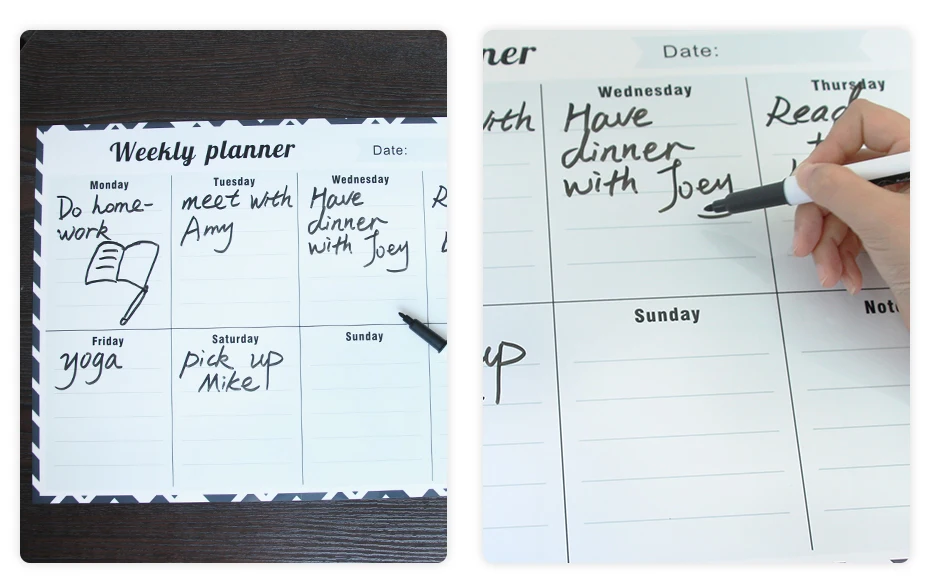 Weekly planner
Date:
Monday
Do home-
work
Tuesday
meet with
Amy
Wednesday
Have
dinner
with Joey
Friday
yoga
Saturday
pick up
Mike
Sunday
Date:
Wednesday
Have
dinner
with Joey
Thursday
Read
Sunday
up